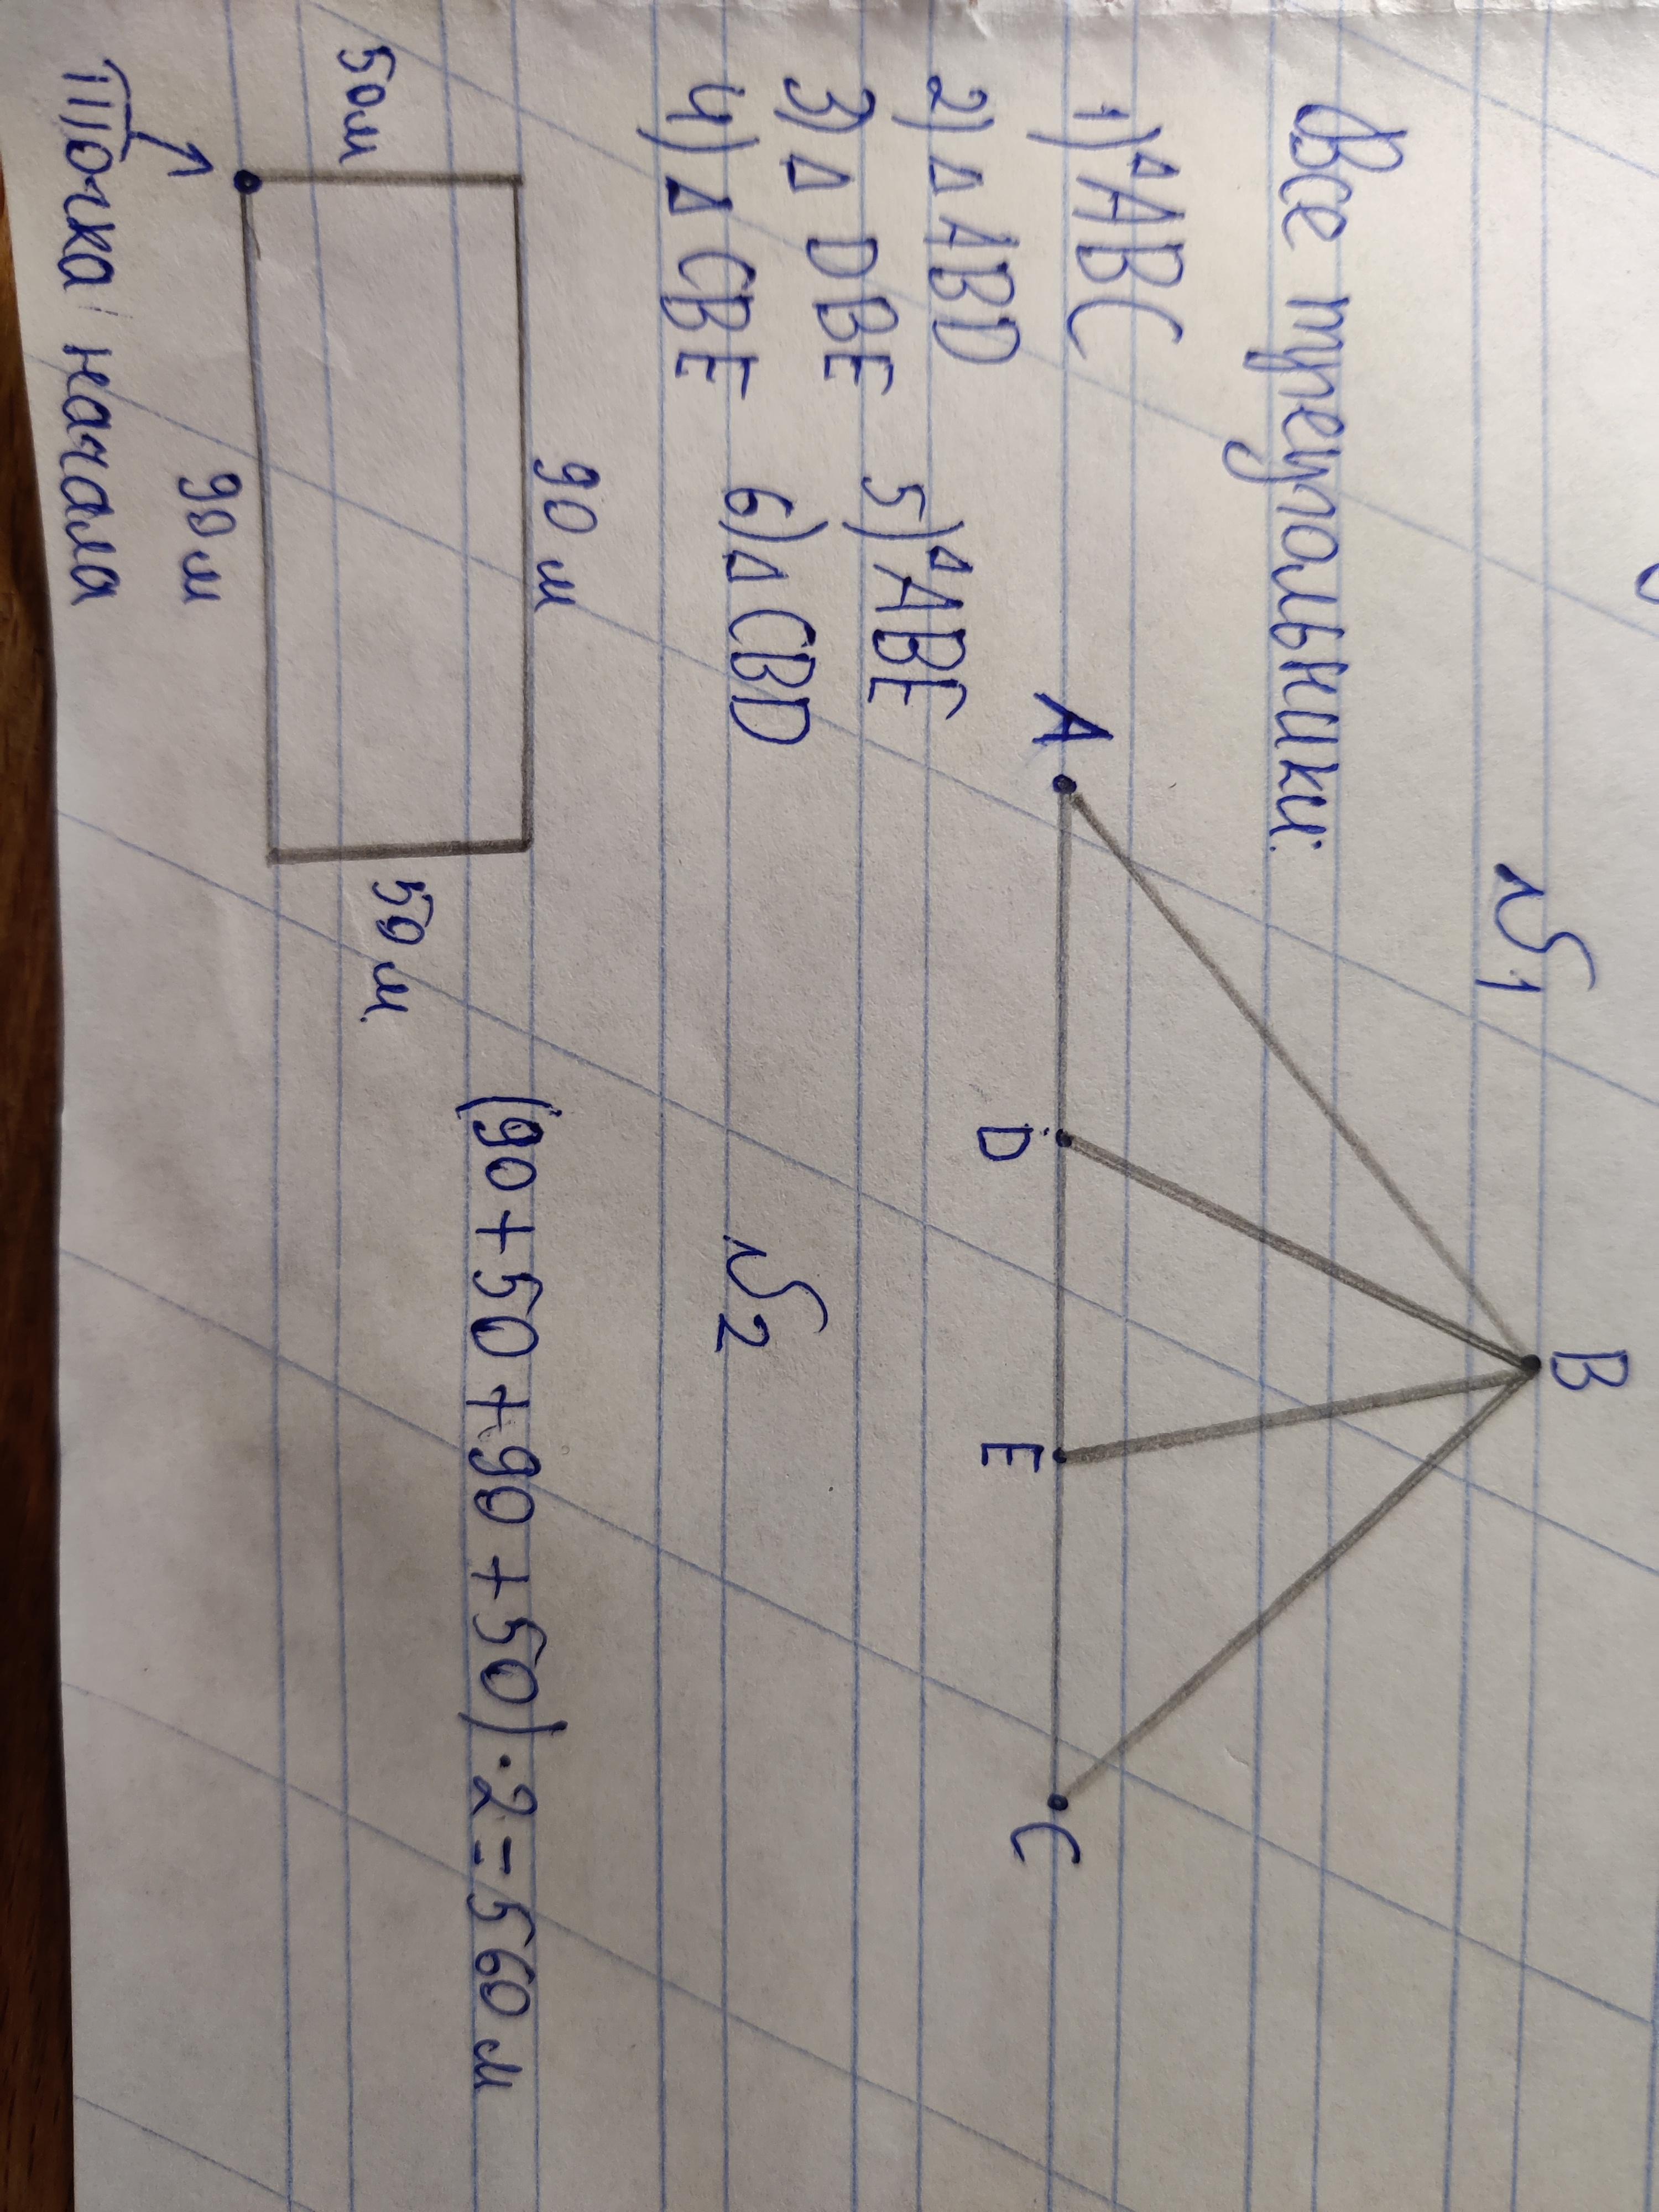 №1
Все треугольники:
B
1) △ABC
2) △ABD
3) △DBE
4) △CBE
5) △ABE
6) △CBD
A
D
E
C
№2
90 м
50м
50 м
90 м
Точка начала
(90+50+90+50)·2=560 м